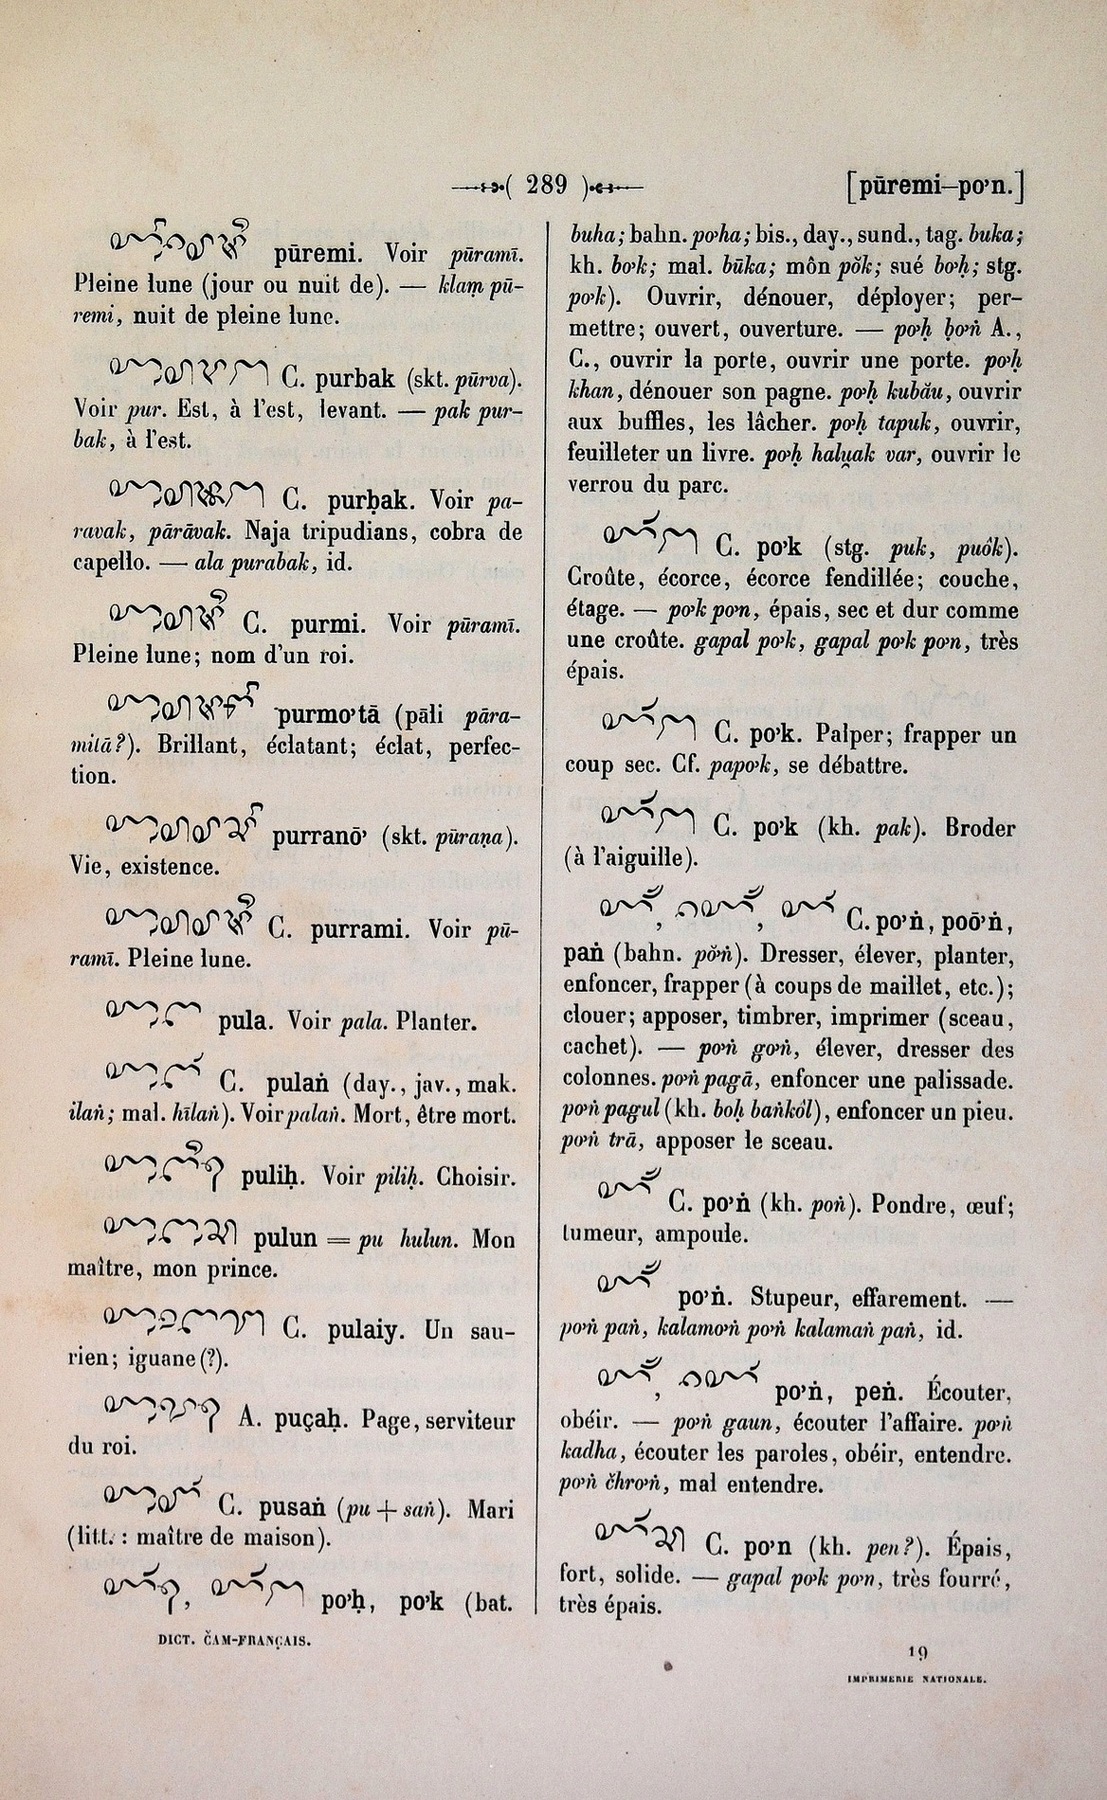 ( 289 )
[pūremi–po’n.]
pūremi. Voir pūramī.
Pleine lune (jour ou nuit de). — klaṃ pū-
remi, nuit de pleine lune.
C. purbak (skt. pūrva).
Voir pur. Est, à l’est, levant. — pak pur-
bak, à l’est.
C. purḅak. Voir pa-
ravak, pārāvak. Naja tripudians, cobra de
capello. — ala purabak, id.
C. purmi. Voir pūramī.
Pleine lune; nom d’un roi.
purmo’tā (pāli pāra-
mitā?). Brillant, éclatant; éclat, perfec-
tion.
purranō’ (skt. pūraṇa).
Vie, existence.
C. purrami. Voir pū-
ramī. Pleine lune.
pula. Voir pala. Planter.
C. pulaṅ (day., jav., mak.
ilaṅ; mal. hīlaṅ). Voir palaṅ. Mort, être mort.
puliḥ. Voir piliḥ. Choisir.
pulun = pu hulun. Mon
maître, mon prince.
C. pulaiy. Un sau-
rien; iguane (?).
A. puçaḥ. Page, serviteur
du roi.
C. pusaṅ (pu + saṅ). Mari
(litt. : maître de maison).
po’ḥ, po’k (bat.
DICT. ČAM-FRANÇAIS.
buha; bahn. po’ha; bis., day., sund., tag. buka;
kh. bo’k; mal. būka; môn pŏk; sué bo’ḥ; stg.
po’k). Ouvrir, dénouer, déployer; per-
mettre; ouvert, ouverture. — po’ḥ ḅo’ṅ A.,
C., ouvrir la porte, ouvrir une porte. po’ḥ
khan, dénouer son pagne. po’ḥ kubău, ouvrir
aux buffles, les lâcher. po’ḥ tapuk, ouvrir,
feuilleter un livre. po’ḥ halu̯ak var, ouvrir le
verrou du parc.
C. po’k (stg. puk, puôk).
Croûte, écorce, écorce fendillée; couche,
étage. — po’k po’n, épais, sec et dur comme
une croûte. gapal po’k, gapal po’k po’n, très
épais.
C. po’k. Palper; frapper un
coup sec. Cf. papo’k, se débattre.
C. po’k (kh. pak). Broder
(à l’aiguille).
C. po’ṅ, poō’ṅ,
paṅ (bahn. pŏ’ṅ). Dresser, élever, planter,
enfoncer, frapper (à coups de maillet, etc.);
clouer; apposer, timbrer, imprimer (sceau,
cachet). — po’ṅ go’ṅ, élever, dresser des
colonnes. po’ṅ pagā, enfoncer une palissade.
po’ṅ pagul (kh. boḥ baṅkôl), enfoncer un pieu.
po’ṅ trā, apposer le sceau.
C. po’ṅ (kh. poṅ). Pondre, œuf;
tumeur, ampoule.
po’ṅ. Stupeur, effarement. —
po’ṅ paṅ, kalamo’ṅ po’ṅ kalamaṅ paṅ, id.
po’ṅ, peṅ. Écouter,
obéir. — po’ṅ gaun, écouter l’affaire. po’ṅ
kadha, écouter les paroles, obéir, entendre.
po’ṅ čhro’ṅ, mal entendre.
C. po’n (kh. pen?). Épais,
fort, solide. — gapal po’k po’n, très fourré,
très épais.
19
IMPRIMERIE NATIONALE.